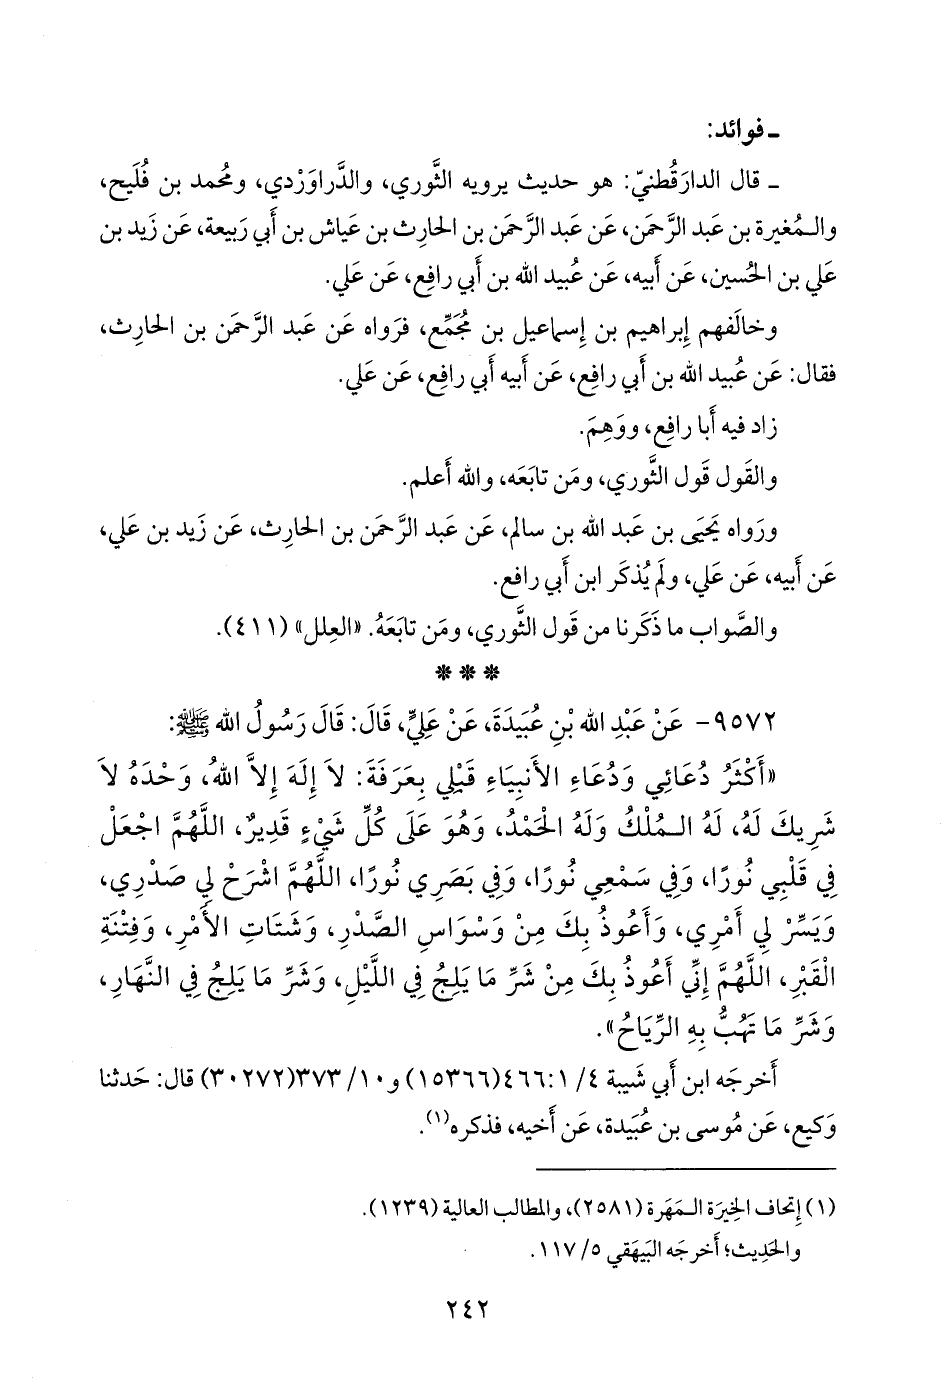 ـ فوائد:
ـ قال الدارَقُطنيّ: هو حديث يرويه الثَّوري، والدَّراوَرْدي، ومُحمد بن فُلَيح،
والـمُغيرة بن عَبد الرَّحمَن، عَن عَبد الرَّحمَن بن الحارِث بن عَياش بن أَبي رَبيعة، عَن زَيد بن
عَلي بن الحُسين، عَن أَبيه، عَن عُبيد الله بن أَبي رافِع، عَن عَلي.
وخالَفهم إِبراهيم بن إِسماعيل بن مُجَمِّع، فرَواه عَن عَبد الرَّحمَن بن الحارِث،
فقال: عَن عُبيد الله بن أَبي رافِع، عَن أَبيه أَبي رافِع، عَن عَلي.
زاد فيه أَبا رافِع، ووَهِمَ.
والقَول قَول الثَّوري، ومَن تابَعَه، والله أَعلم.
ورَواه يَحيَى بن عَبد الله بن سالم، عَن عَبد الرَّحمَن بن الحارِث، عَن زَيد بن عَلي،
عَن أَبيه، عَن عَلي، ولَم يُذكَر ابن أَبي رافع.
والصَّواب ما ذَكَرنا من قَول الثَّوري، ومَن تابَعَهُ. «العِلل» (٤١١).
* * *
٩٥٧٢- عَنْ عَبْدِ الله بْنِ عُبَيدَةَ، عَنْ عَلِيٍّ، قَالَ: قَالَ رَسُولُ الله ﷺ:
«أَكْثَرُ دُعَائِي وَدُعَاءِ الأَنبِيَاءِ قَبْلِي بِعَرَفَةَ: لاَ إِلَهَ إِلاَّ اللهُ، وَحْدَهُ لاَ
شَرِيكَ لَهُ، لَهُ الـمُلْكُ وَلَهُ الْحَمْدُ، وَهُوَ عَلَى كُلِّ شَيْءٍ قَدِيرٌ، اللَّهُمَّ اجْعَلْ
فِي قَلْبِي نُورًا، وَفِي سَمْعِي نُورًا، وَفِي بَصَرِي نُورًا، اللَّهُمَّ اشْرَحْ لِي صَدْرِي،
وَيَسِّرْ لِي أَمْرِي، وَأَعُوذُ بِكَ مِنْ وَسْوَاسِ الصَّدْرِ، وَشَتَاتِ الأَمْرِ، وَفِتْنَةِ
الْقَبْرِ، اللَّهُمَّ إِنِّي أَعُوذُ بِكَ مِنْ شَرِّ مَا يَلِجُ فِي اللَّيْلِ، وَشَرِّ مَا يَلِجُ فِي النَّهَارِ،
وَشَرِّ مَا تَهُبُّ بِهِ الرِّيَاحُ».
أَخرجَه ابن أَبي شَيبة ٤/ ١:٤٦٦(١٥٣٦٦) و١٠/ ٣٧٣(٣٠٢٧٢) قال: حَدثنا
وَكيع، عَن مُوسى بن عُبَيدة، عَن أَخيه، فذكره(١).
(١) إتحاف الخِيرَة الـمَهَرة (٢٥٨١)، والمطالب العالية (١٢٣٩).
والحَدِيث؛ أخرجَه البَيهَقي ٥/ ١١٧.
٢٤٢